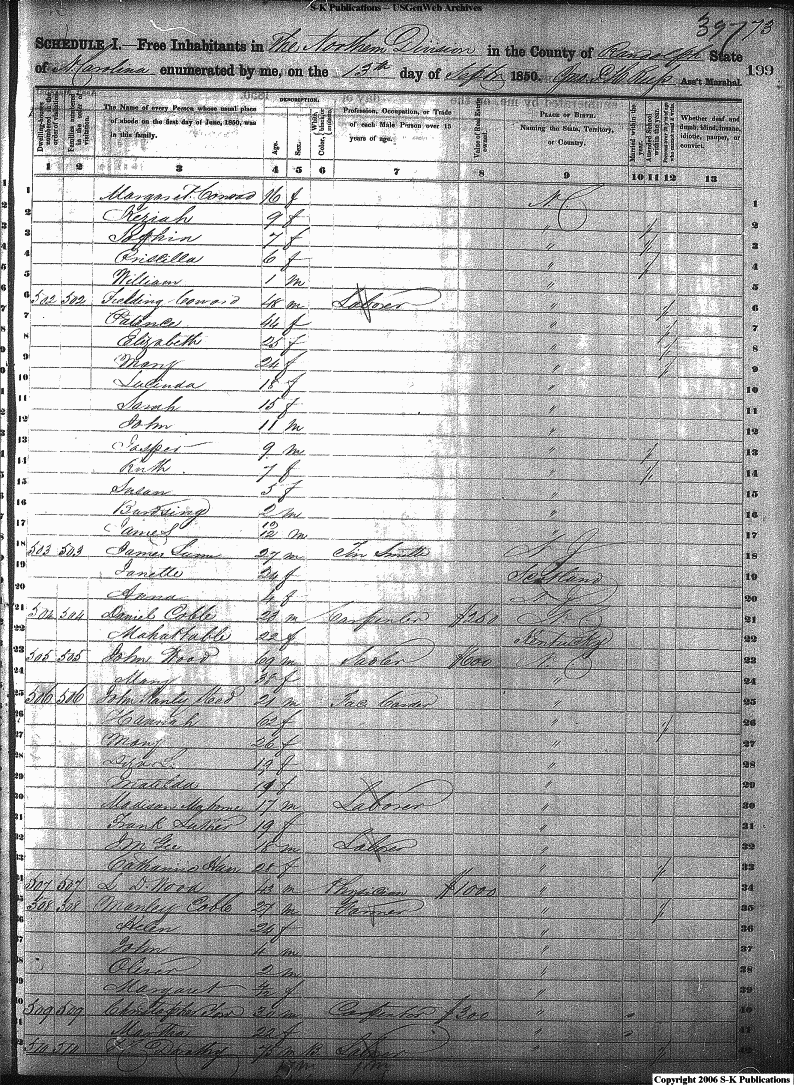 S-K Publications – USGenWeb Archives
397 73
SCHEDULE I.—Free Inhabitants in The Northern Division in the County of Randolph State
of N Carolina enumerated by me, on the 13th day of Septr 1850. Ass't Marshal. 199
DESCRIPTION.
Dwelling-houses numbered in the order of visitation.
Families numbered in the order of visitation.
The Name of every Person whose usual place of abode on the first day of June, 1850, was in this family.
Age.
Sex.
Color, White, black, or mulatto.
Profession, Occupation, or Trade of each Male Person over 15 years of age.
Value of Real Estate owned.
PLACE OF BIRTH. Naming the State, Territory, or Country.
Married within the year.
Attended School within the year.
Persons over 20 y'rs of age who cannot read & write.
Whether deaf and dumb, blind, insane, idiotic, pauper, or convict.
1 2 3 4 5 6 7 8 9 10 11 12 13
1 Margaret Conrad 16 f N C 1
2 Keziah 9 f " / 2
3 Sophia 7 f " / 3
4 Priscilla 6 f " / 4
5 William 1 m " 5
6 502 502 Fielding Conrad 48 m Laborer " / 6
7 Patience 44 f " / 7
8 Elizabeth 25 f " / 8
9 Mary 24 f " / 9
10 Lucinda 18 f " 10
11 Sarah 15 f " 11
12 John 11 m " 12
13 Jasper 9 m " / 13
14 Ruth 7 f " / 14
15 Susan 5 f " 15
16 2 m " 16
17 James /12 m " 17
18 503 503 James 27 m Tin Smith N J 18
19 Janette 24 f Scotland 19
20 Anna 4 f N J 20
21 504 504 Daniel Coble 28 m Carpenter $250 N C 21
22 Mahattable 22 f Kentucky 22
23 505 505 John Wood 69 m $600 N C 23
24 Mary 38 f " 24
25 506 506 John 21 m Fac. Carder " 25
26 Hannah 62 f " / 26
27 Mary 26 f " / 27
28 19 f " 28
29 Matilda 19 f " 29
30 Madison 17 m Laborer " 30
31 Frank Luther 19 f " 31
32 18 m Laborer " 32
33 Catharine 28 f " / 33
34 507 507 L D Wood 43 m Physician $1000 " 34
35 508 508 Manley Coble 27 m Farmer " / 35
36 Helen 24 f " 36
37 John 4 m " 37
38 Oliver 2 m " 38
39 Margaret /12 f " 39
40 509 509 Christopher m Carpenter $300 " 40
41 Martha 22 f " 41
510 510 75 m B Laborer "
Copyright 2006 S-K Publications